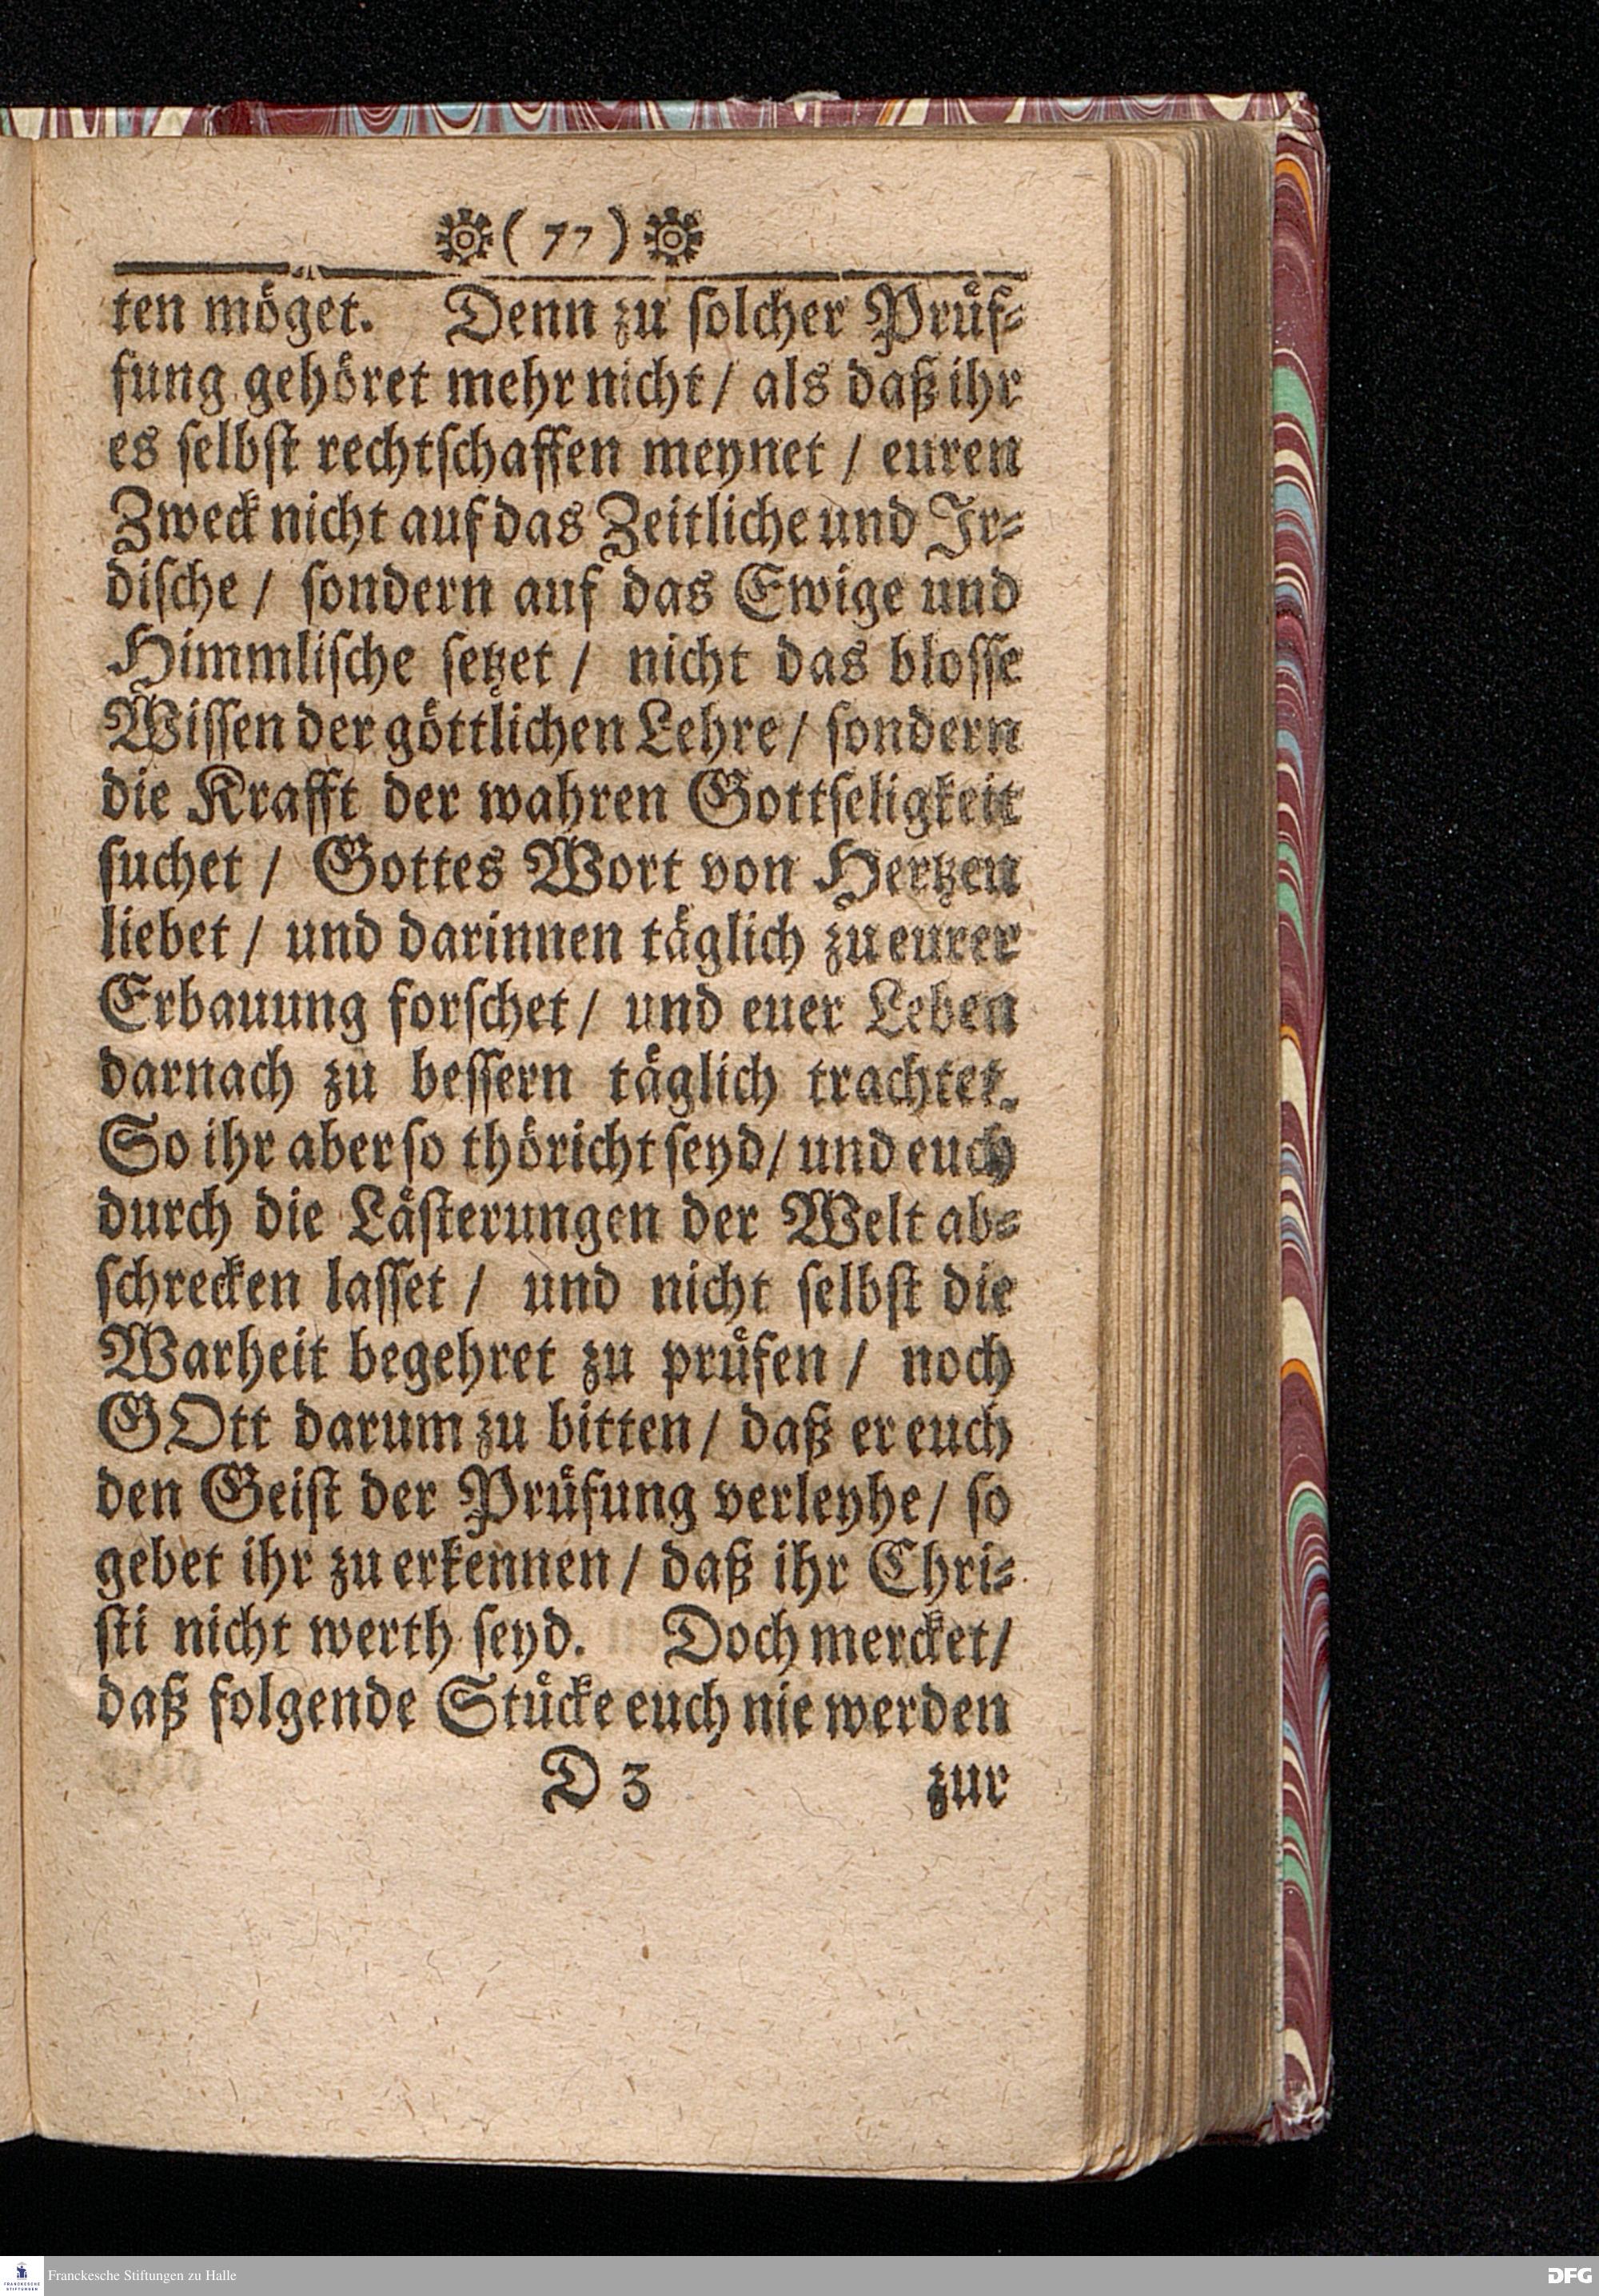 ( 77 )
ten möget. Denn zu ſolcher Prüf-
fung gehöret mehr nicht / als daß ihr
es ſelbſt rechtſchaffen meynet / euren
Zweck nicht auf das Zeitliche und Ir-
diſche / ſondern auf das Ewige und
Himmliſche ſetzet / nicht das bloſſe
Wiſſen der göttlichen Lehre / ſondern
die Krafft der wahren Gottſeligkeit
ſuchet / Gottes Wort von Hertzen
liebet / und darinnen täglich zu eurer
Erbauung forſchet / und euer Leben
darnach zu beſſern täglich trachtet.
So ihr aber ſo thöricht ſeyd / und euch
durch die Läſterungen der Welt ab-
ſchrecken laſſet / und nicht ſelbſt die
Warheit begehret zu prüfen / noch
GOtt darum zu bitten / daß er euch
den Geiſt der Prüfung verleyhe / ſo
gebet ihr zu erkennen / daß ihr Chri-
ſti nicht werth ſeyd. Doch mercket /
daß folgende Stücke euch nie werden
D 3 zur
FRANCKESCHE STIFTUNGEN
Franckesche Stiftungen zu Halle
DFG